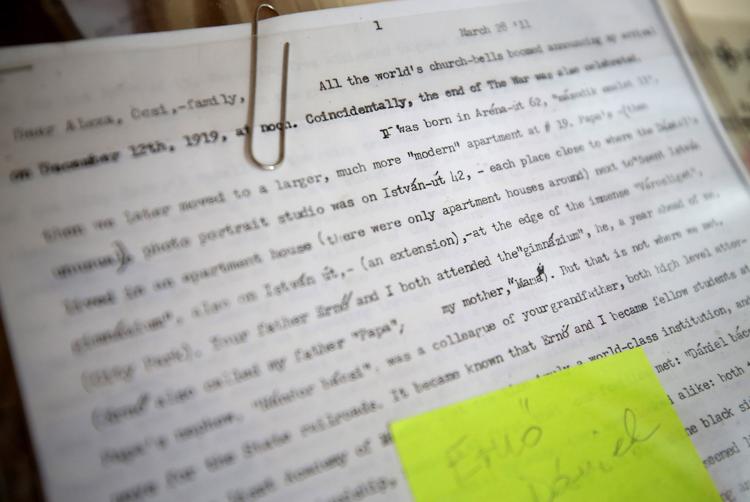 1
March 28 '11
All the world's church-bells boomed announcing my arrival
Dear Alexa, Cssi,-family,
on December 12th, 1919, at noon. Coincidentally, the end of The War was also celebrated.
I was born in Aréna-út 62, "második emelet 11",
then we later moved to a larger, much more "modern" apartment at # 19. Papa's, -(then
unusual), photo portrait studio was on István-út 42, - each place close to where the
lived in an apartment house (there were only apartment houses around) next to "Szent István
, also on István út,- (an extension),-at the edge of the immense "Városliget",
(City Park). Your father Ernő and I both attended the "gimnázium", he, a year ahead of me,
(Ernő also called my father "Papa", my mother, "Mama"). But that is not where we met.
Papa's nephew, "Nándor bácsi", was a colleague of your grandfather, both high level
were for the State railroads. It became known that Ernő and I became fellow students
Academy of a world-class institution, and
met: "Dániel
alike: both
black
seemed
Ernő
Dániel